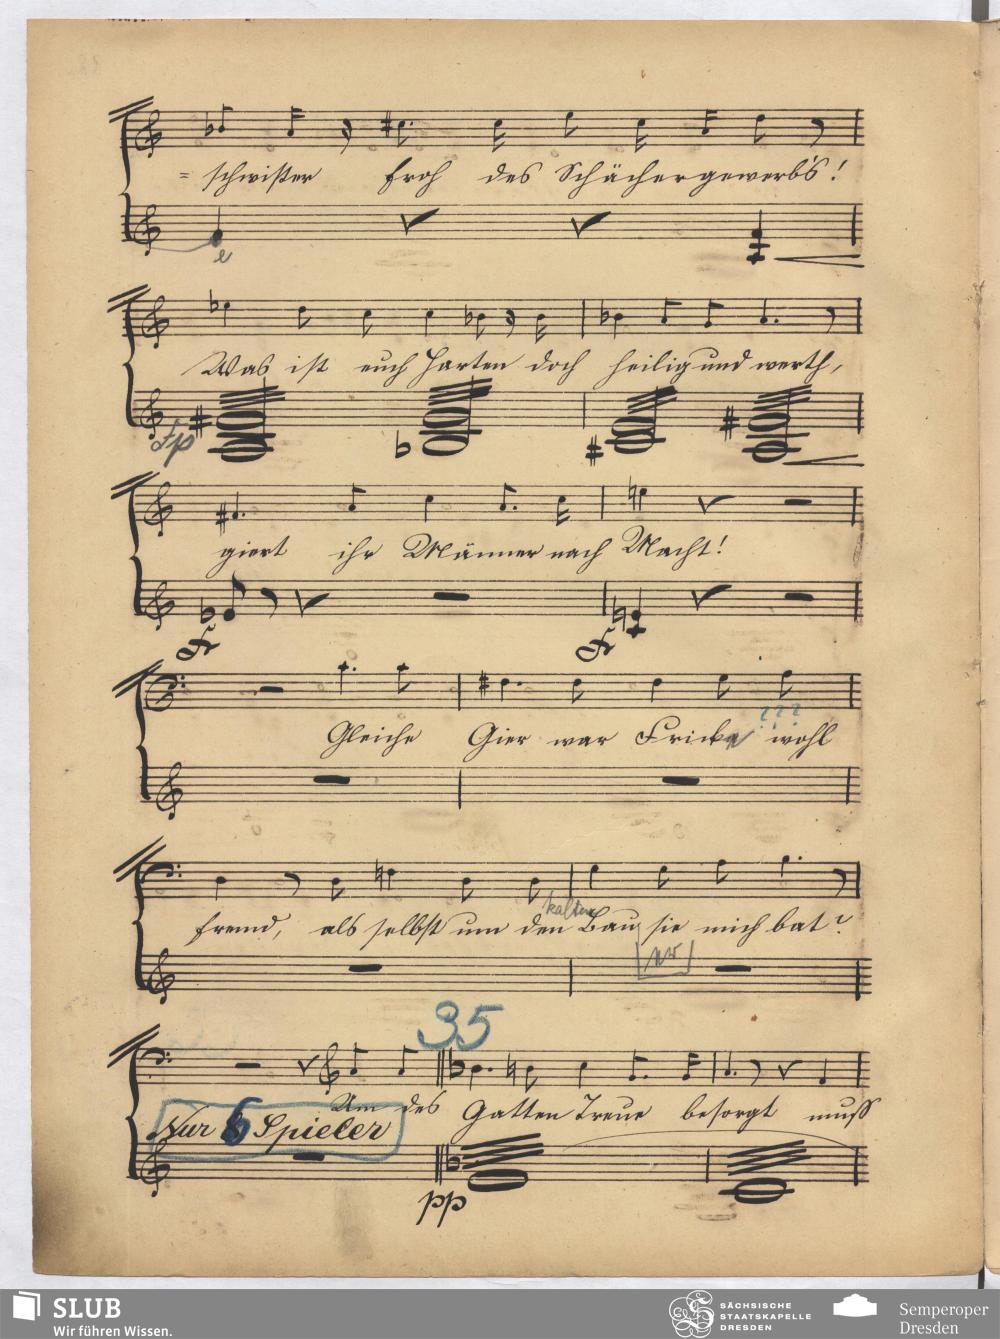 = schwister froh des Schächergewerb's!
e
Was ist euch Harten doch heilig und werth,
fp
giert ihr Männer nach Macht!
f f
Gleiche Gier war Fricka wohl
???
fremd, als selbst um den Bau sie mich bat?
35
Um des Gatten Treue besorgt muss
Nur 6 Spieler
pp
SLUB
Wir führen Wissen.
SÄCHSISCHE
STAATSKAPELLE
DRESDEN
Semperoper
Dresden